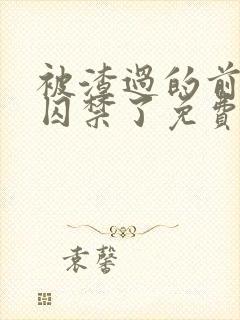 被渣過的前
囚禁了免費
袁馨